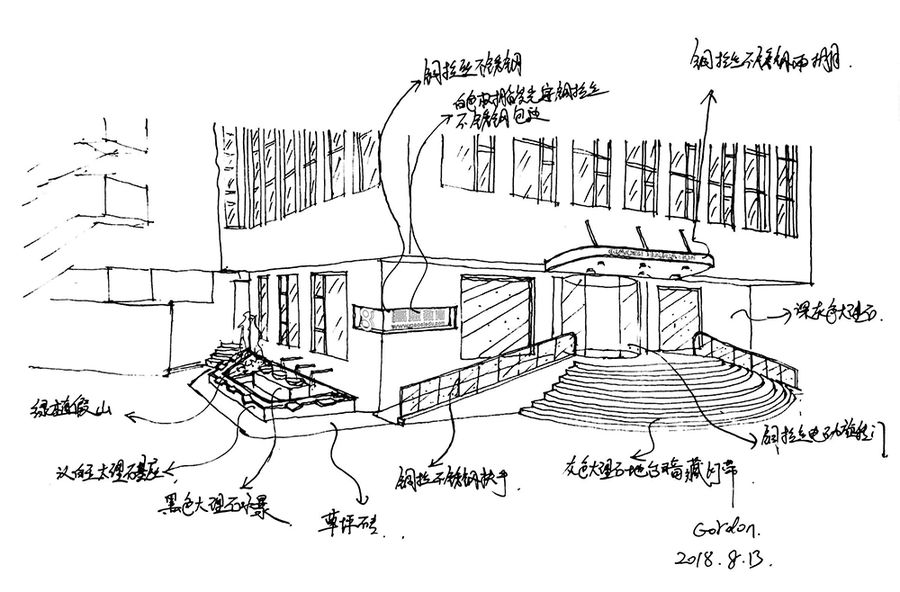 铜拉丝不锈钢
白色树脂发光字铜拉丝
不锈钢包边
铜拉丝不锈钢雨棚
深灰色大理石
绿植假山
汉白玉大理石基座
黑色大理石水景
草坪砖
铜拉不锈钢扶手
灰色大理石地台暗藏灯带
铜拉丝电动旋转门
Gordon.
2018.8.13.